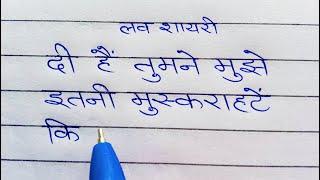 लव शायरी
दी हैं तुमने मुझे
इतनी मुस्कराहटें
कि